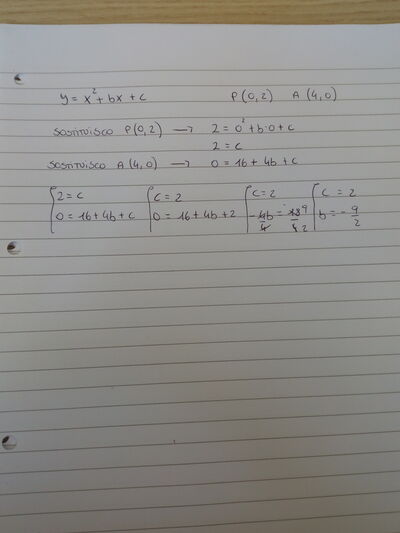 y = x² + bx + c P(0,2) A(4,0)
SOSTITUISCO P(0,2) → 2 = 0² + b·0 + c
2 = c
SOSTITUISCO A(4,0) → 0 = 16 + 4b + c
{2 = c {c = 2 {c = 2 {c = 2
0 = 16 + 4b + c 0 = 16 + 4b + 2 -4b/4 = 18 9/4 2 b = -9/2